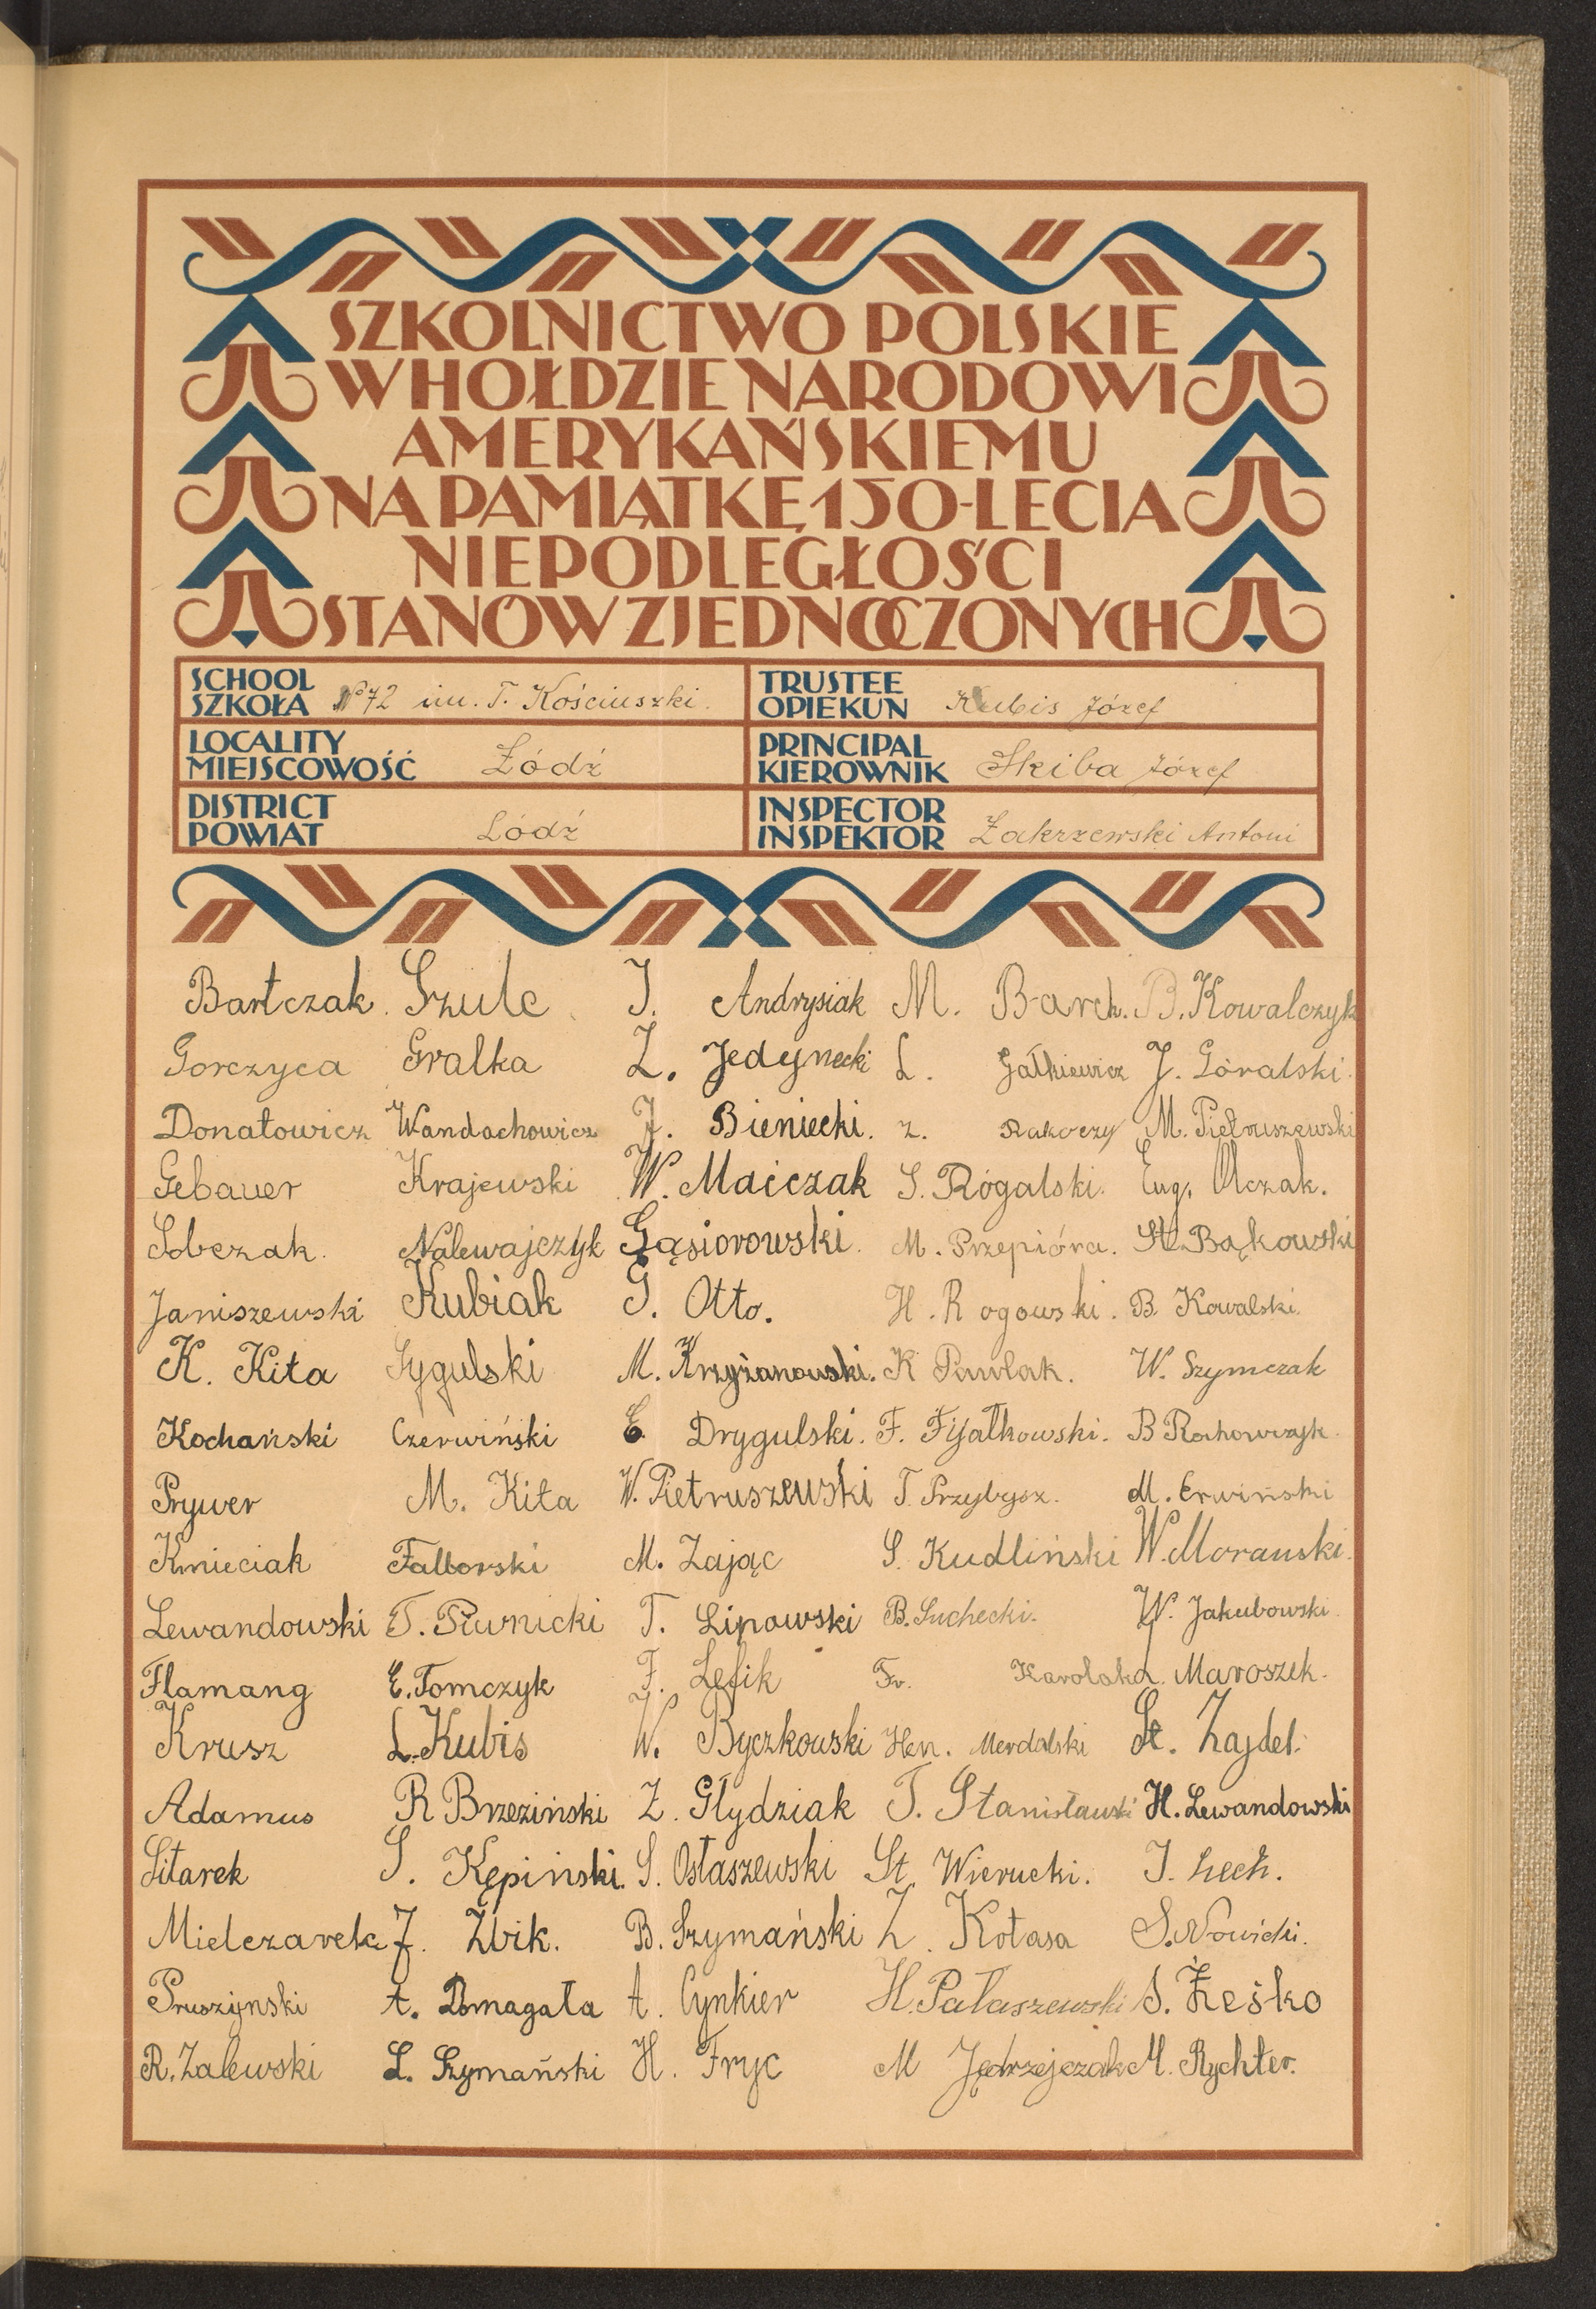 SZKOLNICTWO POLSKIE
W HOŁDZIE NARODOWI
AMERYKAŃSKIEMU
NA PAMIĄTKĘ 150-LECIA
NIEPODLEGŁOŚCI
STANÓW ZJEDNOCZONYCH
SCHOOL
SZKOŁA Nº 72 im. T. Kościuszki.
TRUSTEE
OPIEKUN Kubis Józef
LOCALITY
MIEJSCOWOŚĆ Łódź
PRINCIPAL
KIEROWNIK Skiba Józef
DISTRICT
POWIAT Łódź
INSPECTOR
INSPEKTOR Zakrzewski Antoni
Bartczak. Szulc J. Andrysiak M. Barch. B. Kowalczyk
Gorczyca Gralka Z. Jedynecki L. Gałkiewicz J. Góralski.
Donatowicz Wandachowicz J. Bieniecki. Z. Rakoczy M. Pietruszewski
Gebauer Krajewski W. Maićzak S. Rogalski. Eug. Olczak.
Sobczak. Nalewajczyk Gąsiorowski. M. Przepióra. St. Bąkowski
Janiszewski Kubiak G. Otto. H. Rogowski. B. Kowalski.
K. Kita Sygulski M. Krzyżanowski. K Pawlak. W. Szymczak
Kochański Czerwiński E. Drygulski. F. Fijałkowski. B
Prywer M. Kita W. Pietruszewski T. Przybysz. M. Erwiński
Kmieciak Falborski M. Zając S. Kudliński W. Morawski.
Lewandowski T. Piwnicki T. Lipowski B. Suchecki. W. Jakubowski.
Flamang E. Tomczyk F. Lefik Fr. Karolak A. Maroszek.
Krusz L. Kubis W. Byczkowski Hen. Merdalski St. Zajdel.
Adamus R Brzeziński Z. Głydziak T. Stanisławski H. Lewandowski
Sitarek S. Kępiński. S. Ostaszewski St. Wierucki. J. Lech.
Mielczarek J. Żbik. B. Szymański Z. Kotasa S. Nowicki.
Pruszynski A. Domagała A. Cynkier H. Pałaszewski S. Żeśko
R. Zalewski L. Szymański H. Fryc M Jędrzejczak M. Rychter.